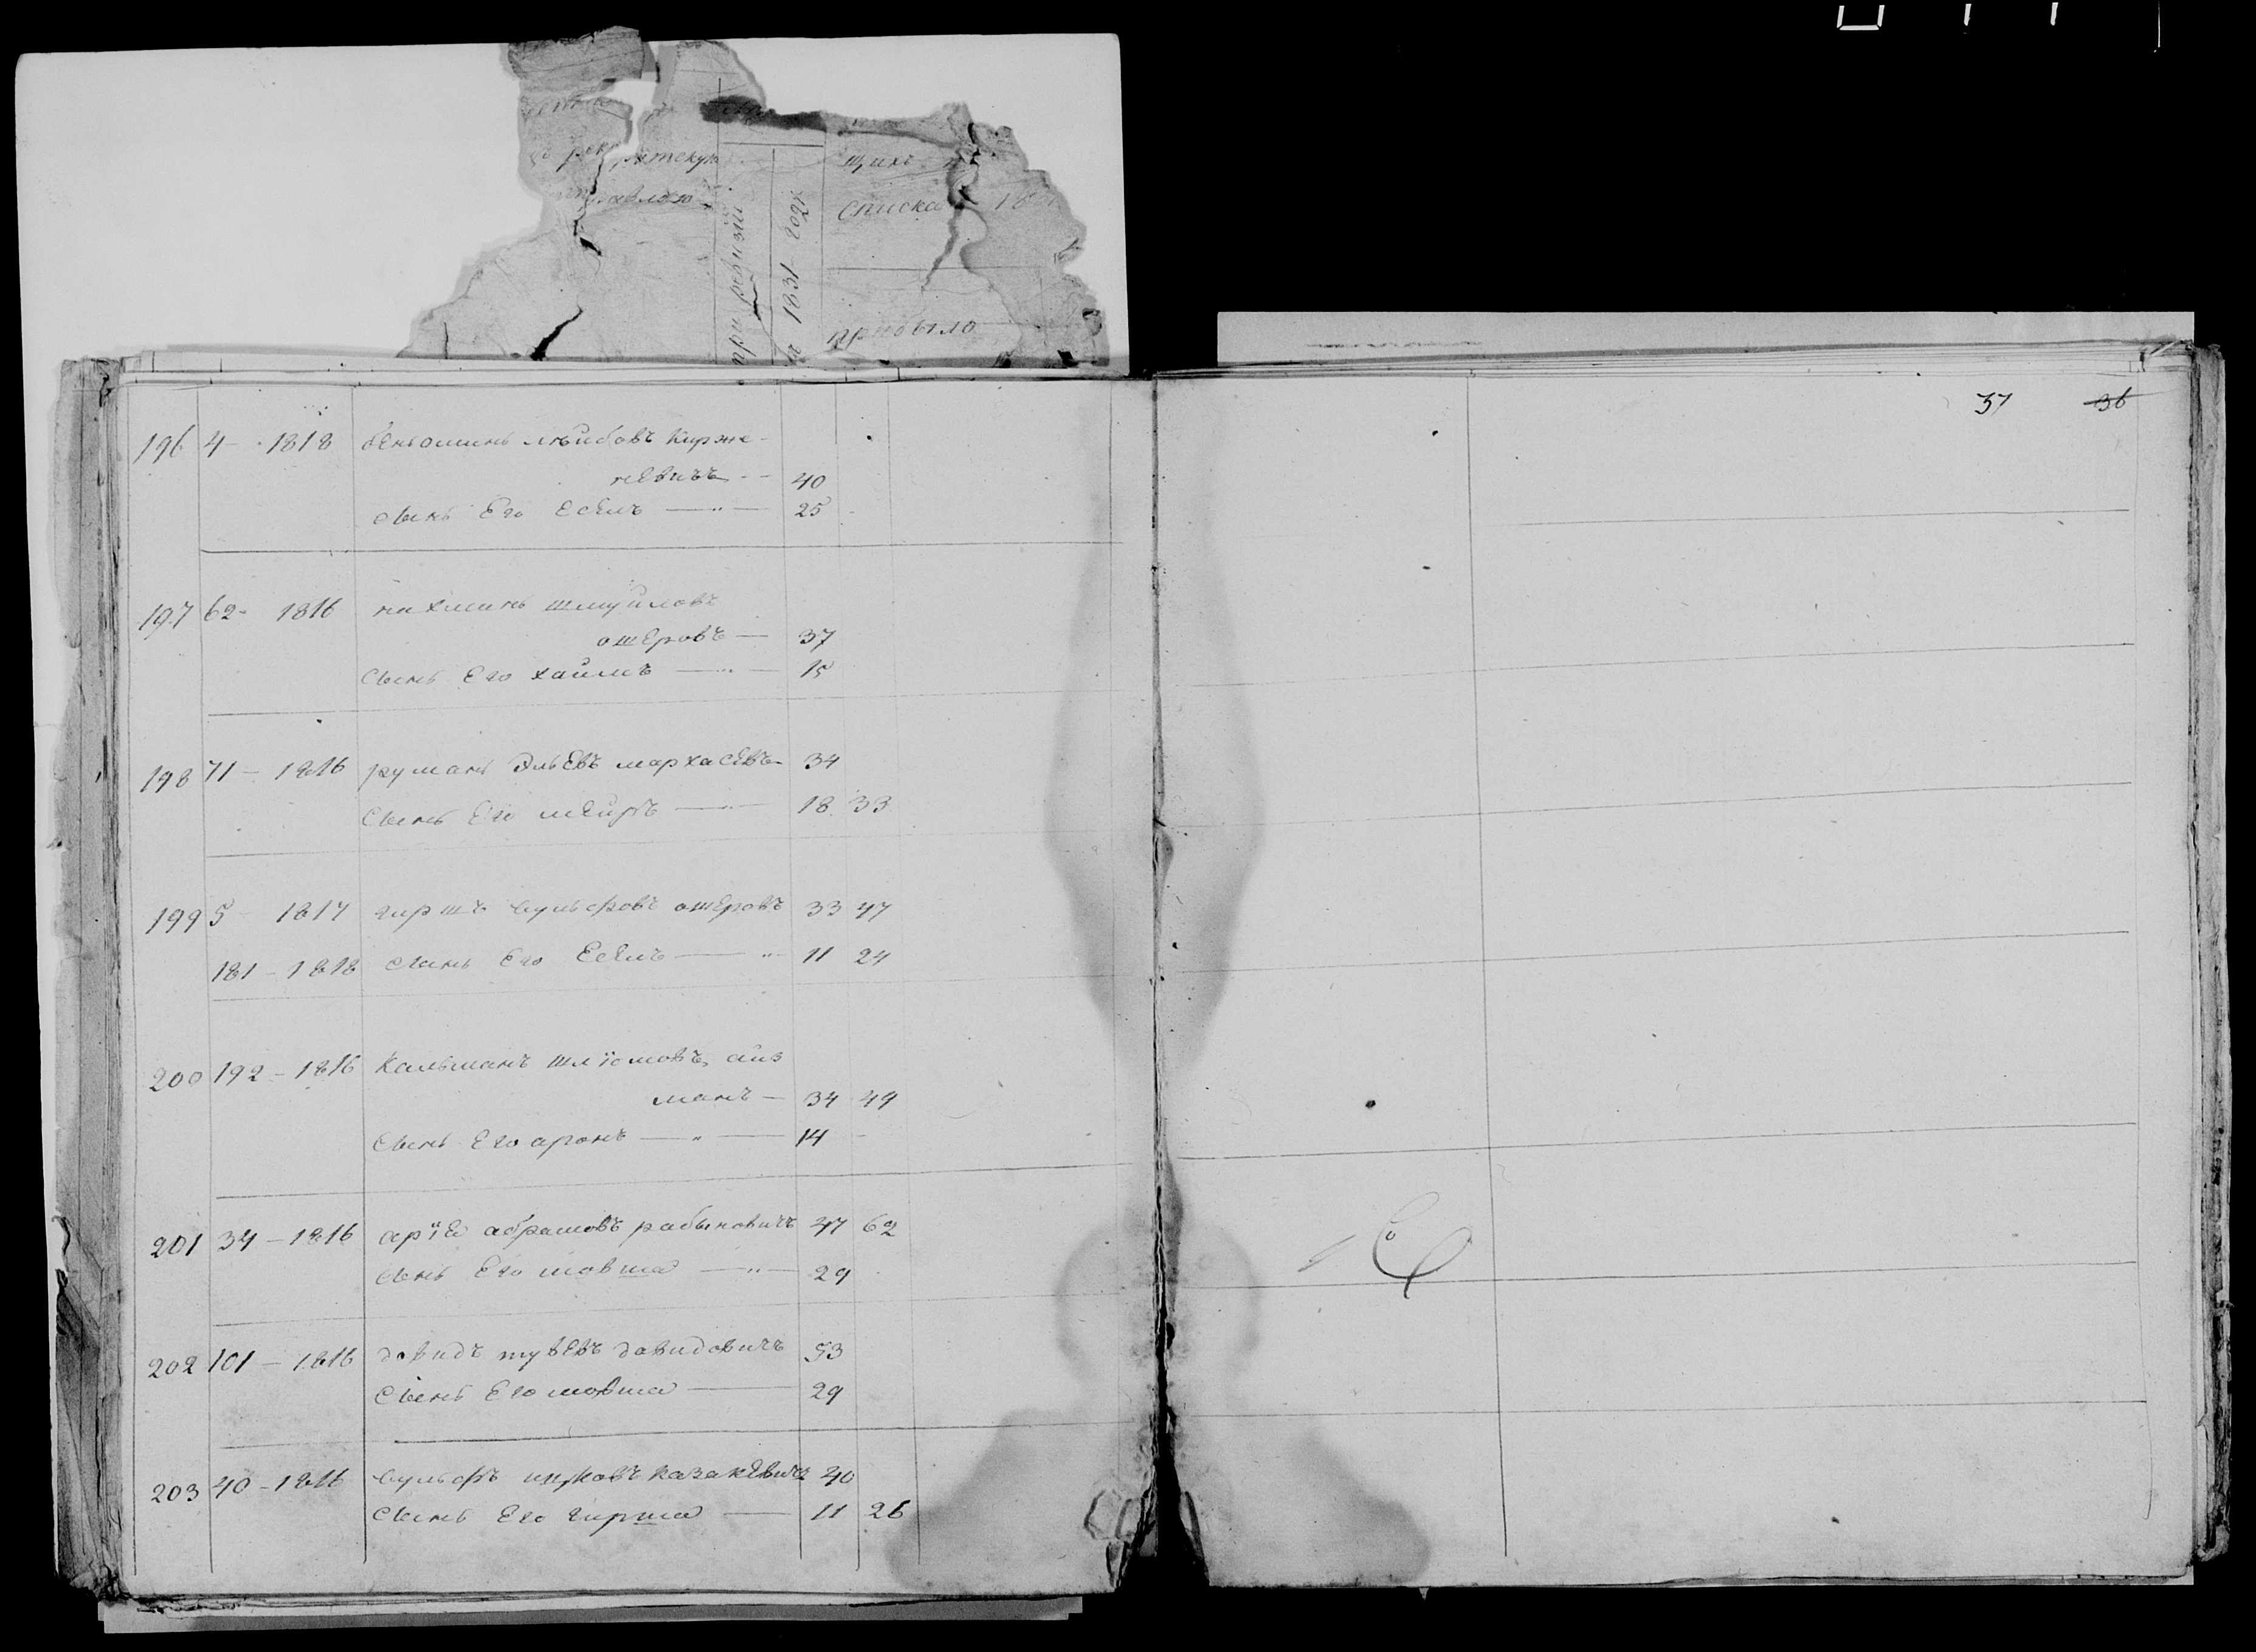 рекрутскую
при ревизіи
1831 года
щихъ
списка 18
прибыло
37 36
196 4 - 1818 беньоминъ лѣйбовъ Кирже-
невичъ - 40
сынъ Его Есель — " — 25
197 62 - 1816 нахманъ шмуйловъ
ошеровъ — 37
сынъ Его хаимъ — " — 15
198 71 - 1816 руманъ Эльевъ мархасевъ 34
сынъ Его меиръ — " — 18 33
199 5 - 1817 гиршъ вульфовъ ошеровъ 33 47
181 - 1818 сынъ Его Есель — " 11 24
200 192 - 1816 Кальманъ шліомовъ айз
манъ — 34 49
сынъ Его аронъ — " — 14 -
201 34 - 1816 аріе абрамовъ рабыновичъ 47 62
сынъ Его мовша — " — 29
202 101 - 1816 давидъ тувевъ давидовичъ 53
сынъ Его мовша — 29
203 40 - 1816 вульфъ ицковъ казакевичъ 40
сынъ Его гирша — 11 26